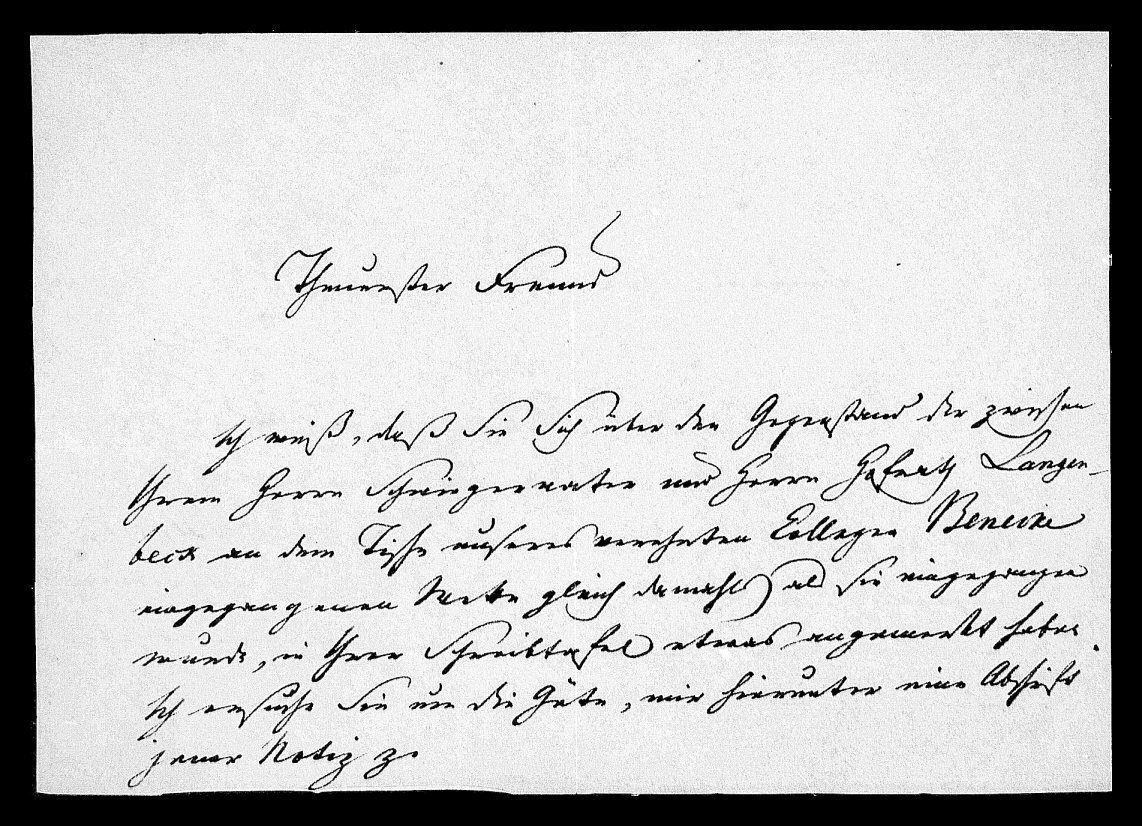 Theuerster Freund
Ich weiß, daß Sie Sich über den Gegenstand der zwischen
Ihrem Herrn Schwiegervater und Herrn Hofrath Langen-
beck an dem Tische unseres verehrten Collegen Benecke
eingegangenen Wette gleich damahls als sie eingegangen
wurde, in Ihrer Schreibtafel etwas angemerkt haben.
Ich ersuche Sie um die Güte, mir hierunter eine Abschrift
jener Notiz